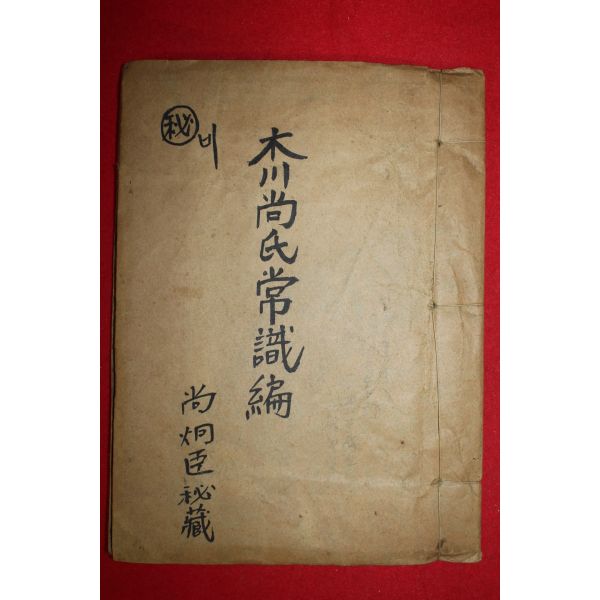 木川尚氏常識編
㊙ 비
尚炯臣秘藏